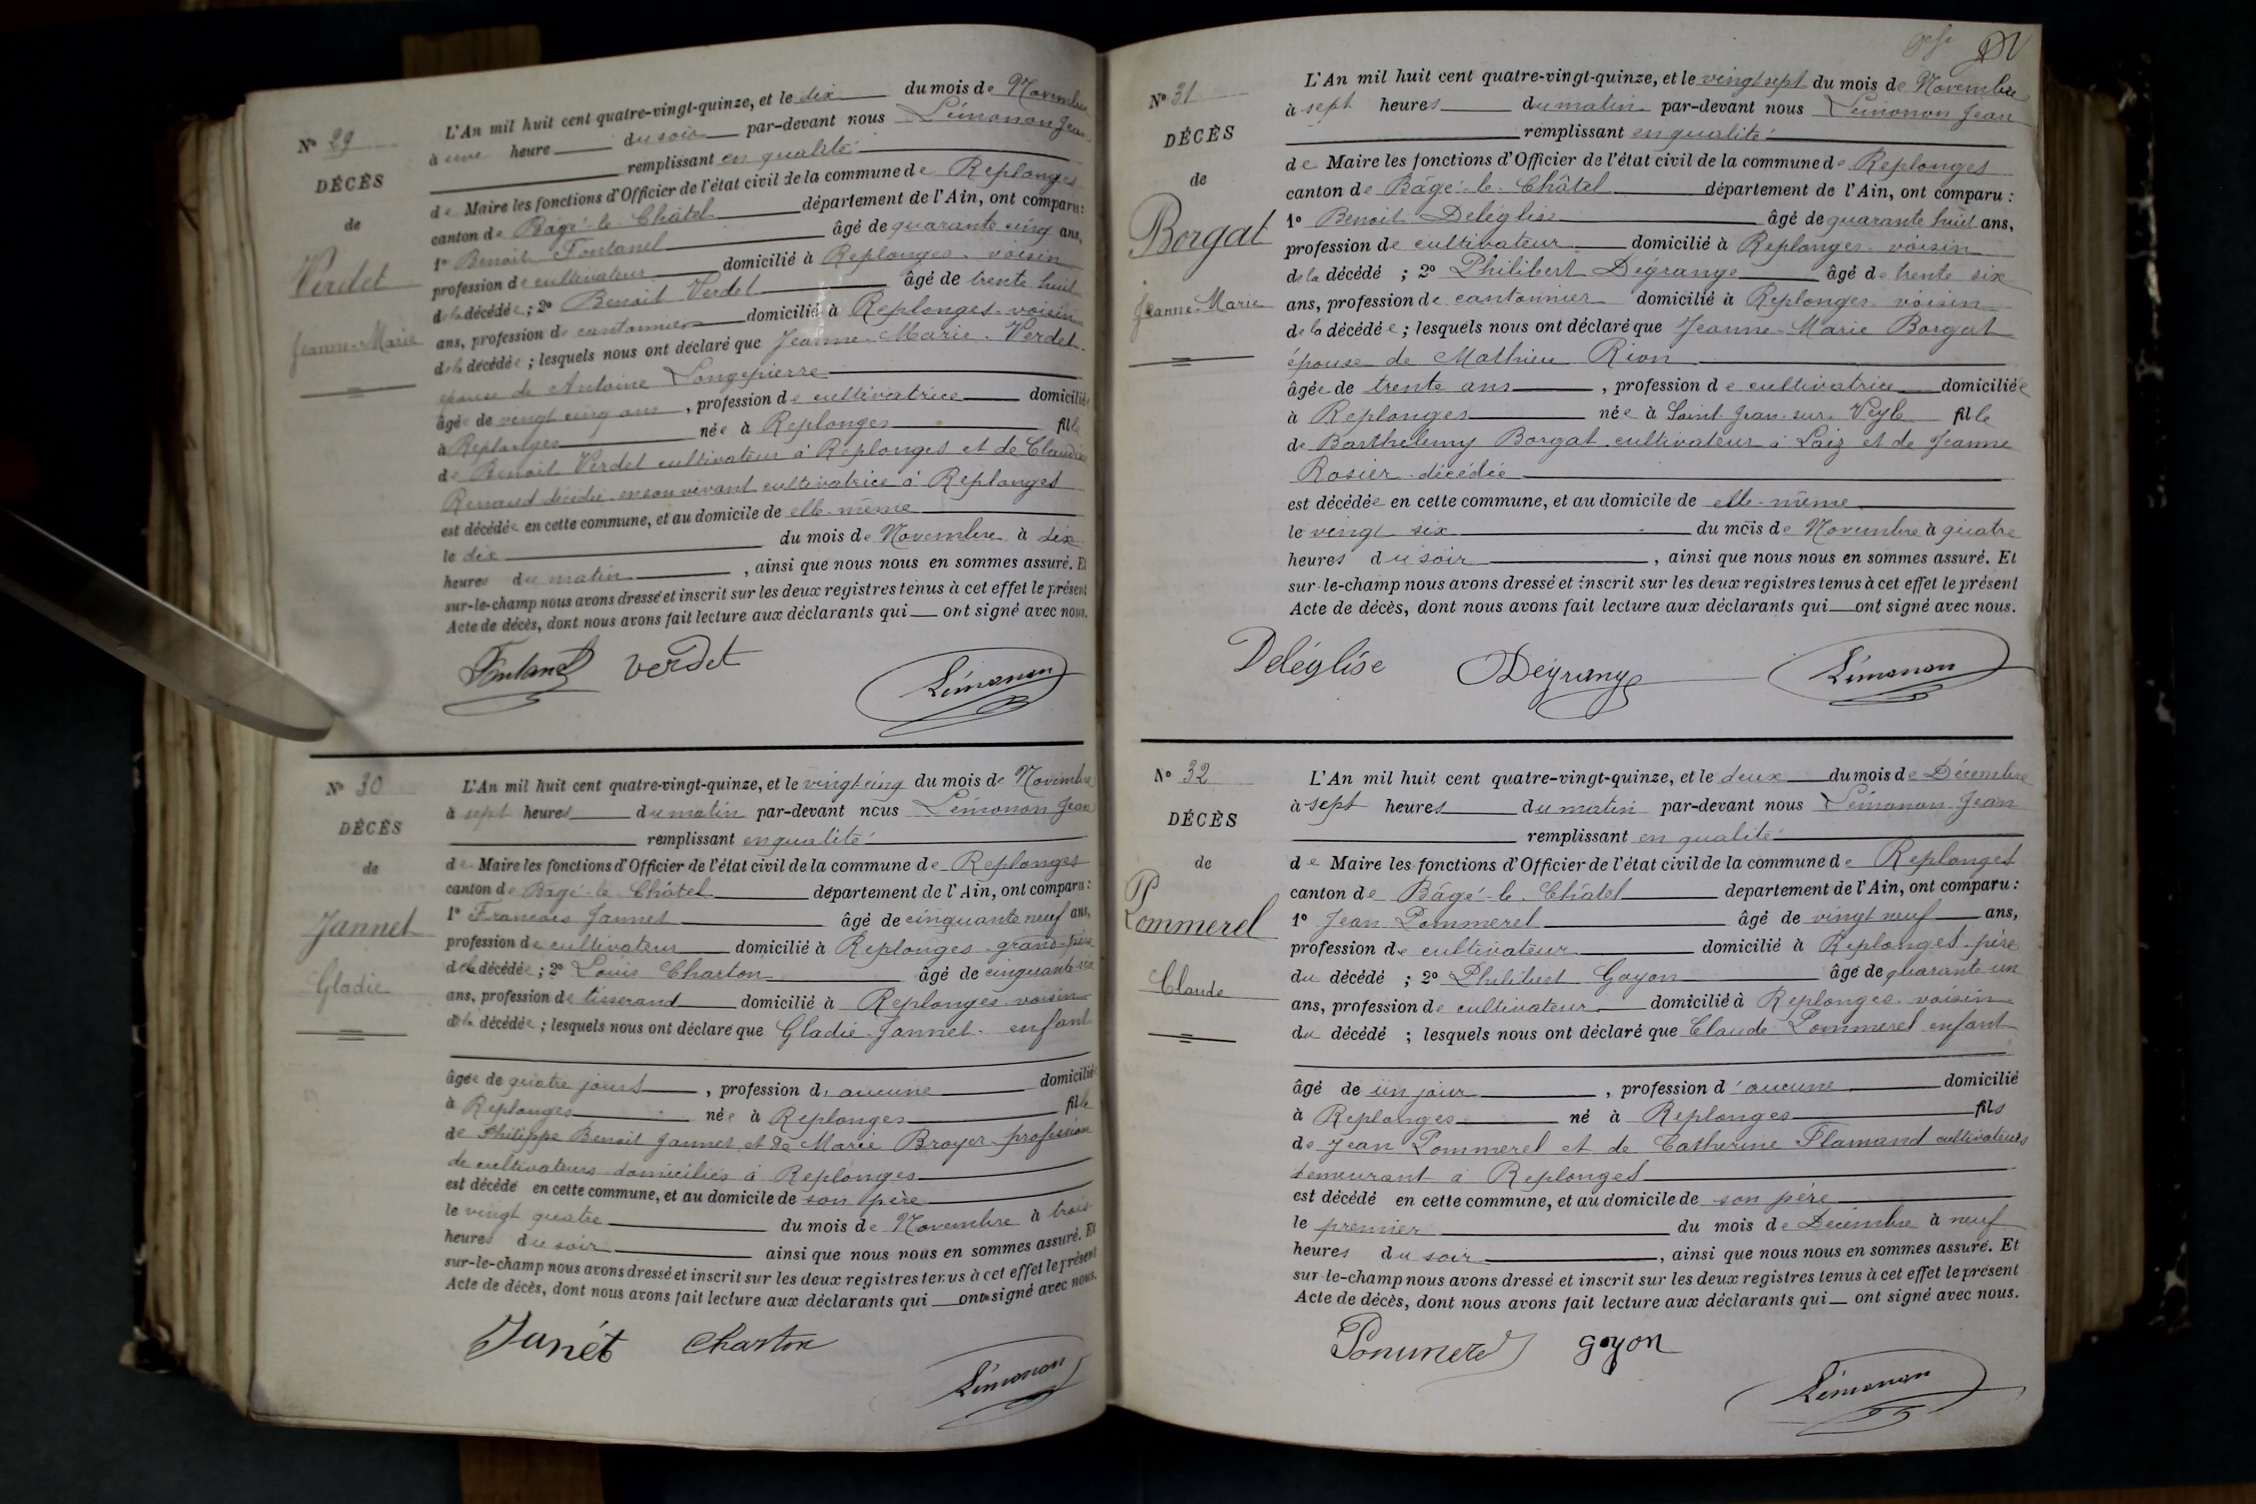 N° 29
DÉCÈS
de
Verdet
Jeanne-Marie
L'An mil huit cent quatre-vingt-quinze, et le dix du mois de Novembre
à une heure du soir par-devant nous Lémonon Jean
remplissant en qualité
de Maire les fonctions d'Officier de l'état civil de la commune de Replonges
canton de Bâgé-le-Châtel département de l'Ain, ont comparu :
1° Benoit Fontanel âgé de quarante cinq ans,
profession de cultivateur domicilié à Replonges voisin
de la décédée ; 2° Benoit Verdet âgé de trente huit
ans, profession de cantonnier domicilié à Replonges voisin
de la décédée ; lesquels nous ont déclaré que Jeanne-Marie Verdet
épouse de Antoine Longepierre
âgée de vingt cinq ans, profession de cultivatrice domiciliée
à Replonges née à Replonges fille
de Benoit Verdet cultivateur à Replonges et de Claudine
Renaud décédée en son vivant cultivatrice à Replonges
est décédée en cette commune, et au domicile de elle-même
le dix du mois de Novembre à dix
heures du matin, ainsi que nous nous en sommes assuré. Et
sur-le-champ nous avons dressé et inscrit sur les deux registres tenus à cet effet le présent
Acte de décès, dont nous avons fait lecture aux déclarants qui ont signé avec nous.
Fontanel Verdet Lémonon
N° 30
DÉCÈS
de
Jannet
Gladie
L'An mil huit cent quatre-vingt-quinze, et le vingt cinq du mois de Novembre
à sept heures du matin par-devant nous Lémonon Jean
remplissant en qualité
de Maire les fonctions d'Officier de l'état civil de la commune de Replonges
canton de Bâgé-le-Châtel département de l'Ain, ont comparu :
1° Francois Jannet âgé de cinquante neuf ans,
profession de cultivateur domicilié à Replonges grand-père
de la décédée ; 2° Louis Charton âgé de cinquante six
ans, profession de tisserand domicilié à Replonges voisin
de la décédée ; lesquels nous ont déclaré que Gladie Jannet enfant
âgée de quatre jours, profession d'aucune domicilié
à Replonges née à Replonges fille
de Philippe Benoit Jannet et de Marie Broyer profession
de cultivateurs domiciliés à Replonges
est décédé en cette commune, et au domicile de son père
le vingt quatre du mois de Novembre à trois
heures du soir ainsi que nous nous en sommes assuré. Et
sur-le-champ nous avons dressé et inscrit sur les deux registres tenus à cet effet le présent
Acte de décès, dont nous avons fait lecture aux déclarants qui ont signé avec nous.
Janét Charton Lémonon
N° 31
DÉCÈS
de
Borgat
Jeanne-Marie
L'An mil huit cent quatre-vingt-quinze, et le vingt sept du mois de Novembre
à sept heures du matin par-devant nous Lémonon Jean
remplissant en qualité
de Maire les fonctions d'Officier de l'état civil de la commune de Replonges
canton de Bâgé-le-Châtel département de l'Ain, ont comparu :
1° Benoit Deléglise âgé de quarante huit ans,
profession de cultivateur domicilié à Replonges voisin
de la décédé ; 2° Philibert Dégrange âgé de trente six
ans, profession de cantonnier domicilié à Replonges voisin
de la décédée ; lesquels nous ont déclaré que Jeanne-Marie Borgat
épouse de Mathieu Rion
âgée de trente ans, profession de cultivatrice domiciliée
à Replonges née à Saint-Jean-sur-Veyle fille
de Barthelemy Borgat cultivateur à Laiz et de Jeanne
Rosier décédée
est décédée en cette commune, et au domicile de elle-même
le vingt six du mois de Novembre à quatre
heures du soir, ainsi que nous nous en sommes assuré. Et
sur-le-champ nous avons dressé et inscrit sur les deux registres tenus à cet effet le présent
Acte de décès, dont nous avons fait lecture aux déclarants qui ont signé avec nous.
Deléglise Dégrange Lémonon
N° 32
DÉCÈS
de
Pommerel
Claude
L'An mil huit cent quatre-vingt-quinze, et le deux du mois de Décembre
à sept heures du matin par-devant nous Lémonon Jean
remplissant en qualité
de Maire les fonctions d'Officier de l'état civil de la commune de Replonges
canton de Bâgé-le-Châtel département de l'Ain, ont comparu :
1° Jean Pommerel âgé de vingt neuf ans,
profession de cultivateur domicilié à Replonges père
du décédé ; 2° Philibert Goyon âgé de quarante un
ans, profession de cultivateur domicilié à Replonges voisin
du décédé ; lesquels nous ont déclaré que Claude Pommerel enfant
âgé de un jour, profession d'aucune domicilié
à Replonges né à Replonges fils
de Jean Pommerel et de Catherine Flamand cultivateurs
demeurant à Replonges
est décédé en cette commune, et au domicile de son père
le premier du mois de Décembre à neuf
heures du soir, ainsi que nous nous en sommes assuré. Et
sur-le-champ nous avons dressé et inscrit sur les deux registres tenus à cet effet le présent
Acte de décès, dont nous avons fait lecture aux déclarants qui ont signé avec nous.
Pommerel goyon Lémonon